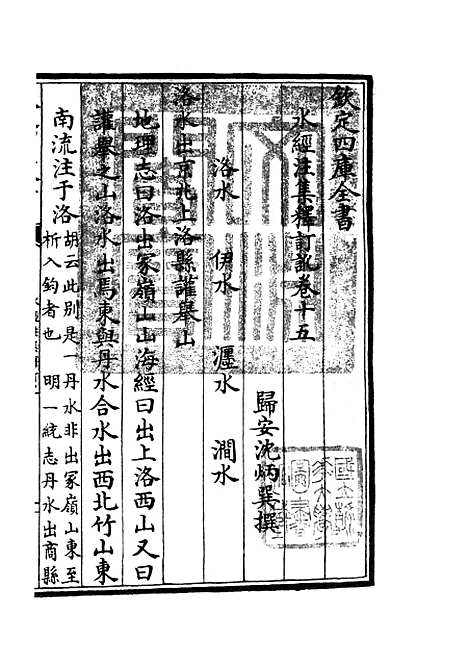 欽定四庫全書
水經注集釋訂訛卷十五
歸安沈炳巽撰
洛水 伊水 瀍水 澗水
洛水出京兆上洛縣讙舉山
地理志曰洛出冢嶺山山海經曰出上洛西山又曰
讙舉之山洛水出焉東與丹水合水出西北竹山東
南流注于洛胡云此别是一丹水非出冢嶺山東至
析入鈞者也 明一統志丹水出商縣